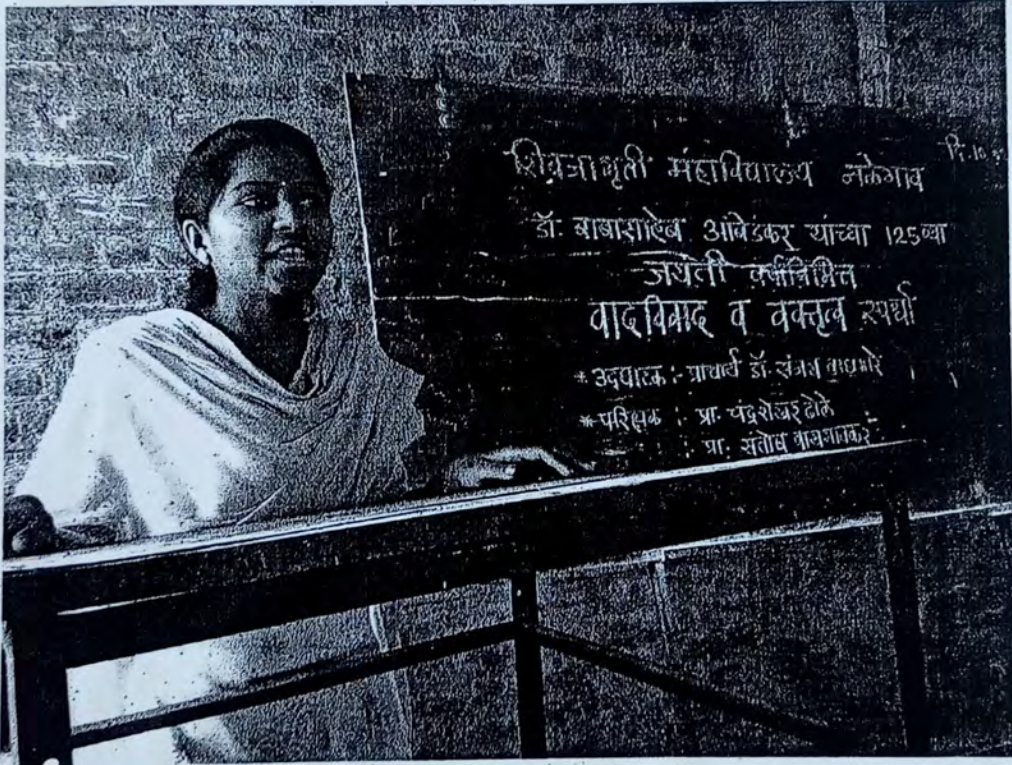 दि. 10
शिवजागृती महाविद्यालय नळेगाव
डॉ. बाबासाहेब आंबेडकर यांच्या 125 व्या
जयंती वर्षानिमित्त
वादविवाद व वक्तृत्व स्पर्धा
* उदघाटक :- प्राचार्य डॉ. संजय वाघमारे
* परिक्षक : प्रा. चंद्रशेखर ढोले
प्रा. संतोष